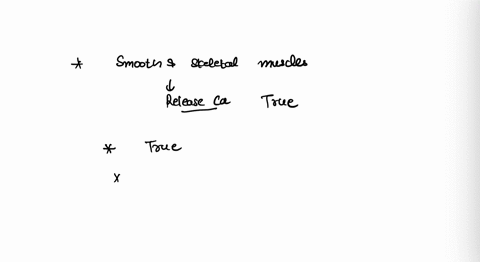 * Smooth & skeletal muscles
↓
Release Ca True
* True
x